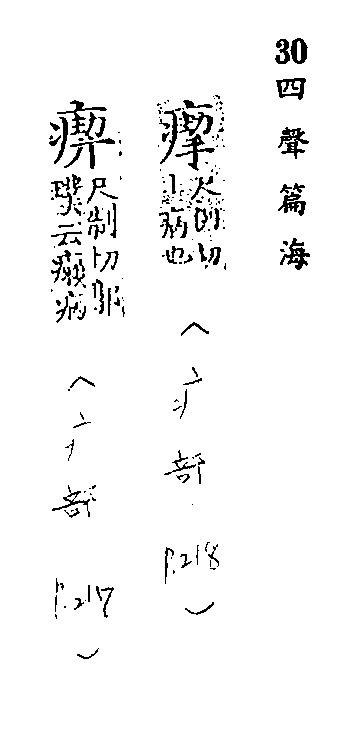 30 四聲篇海
尺 切
丨病也
（疒部 P.218）
尺制切郭
璞云 病
（疒部 P.217）